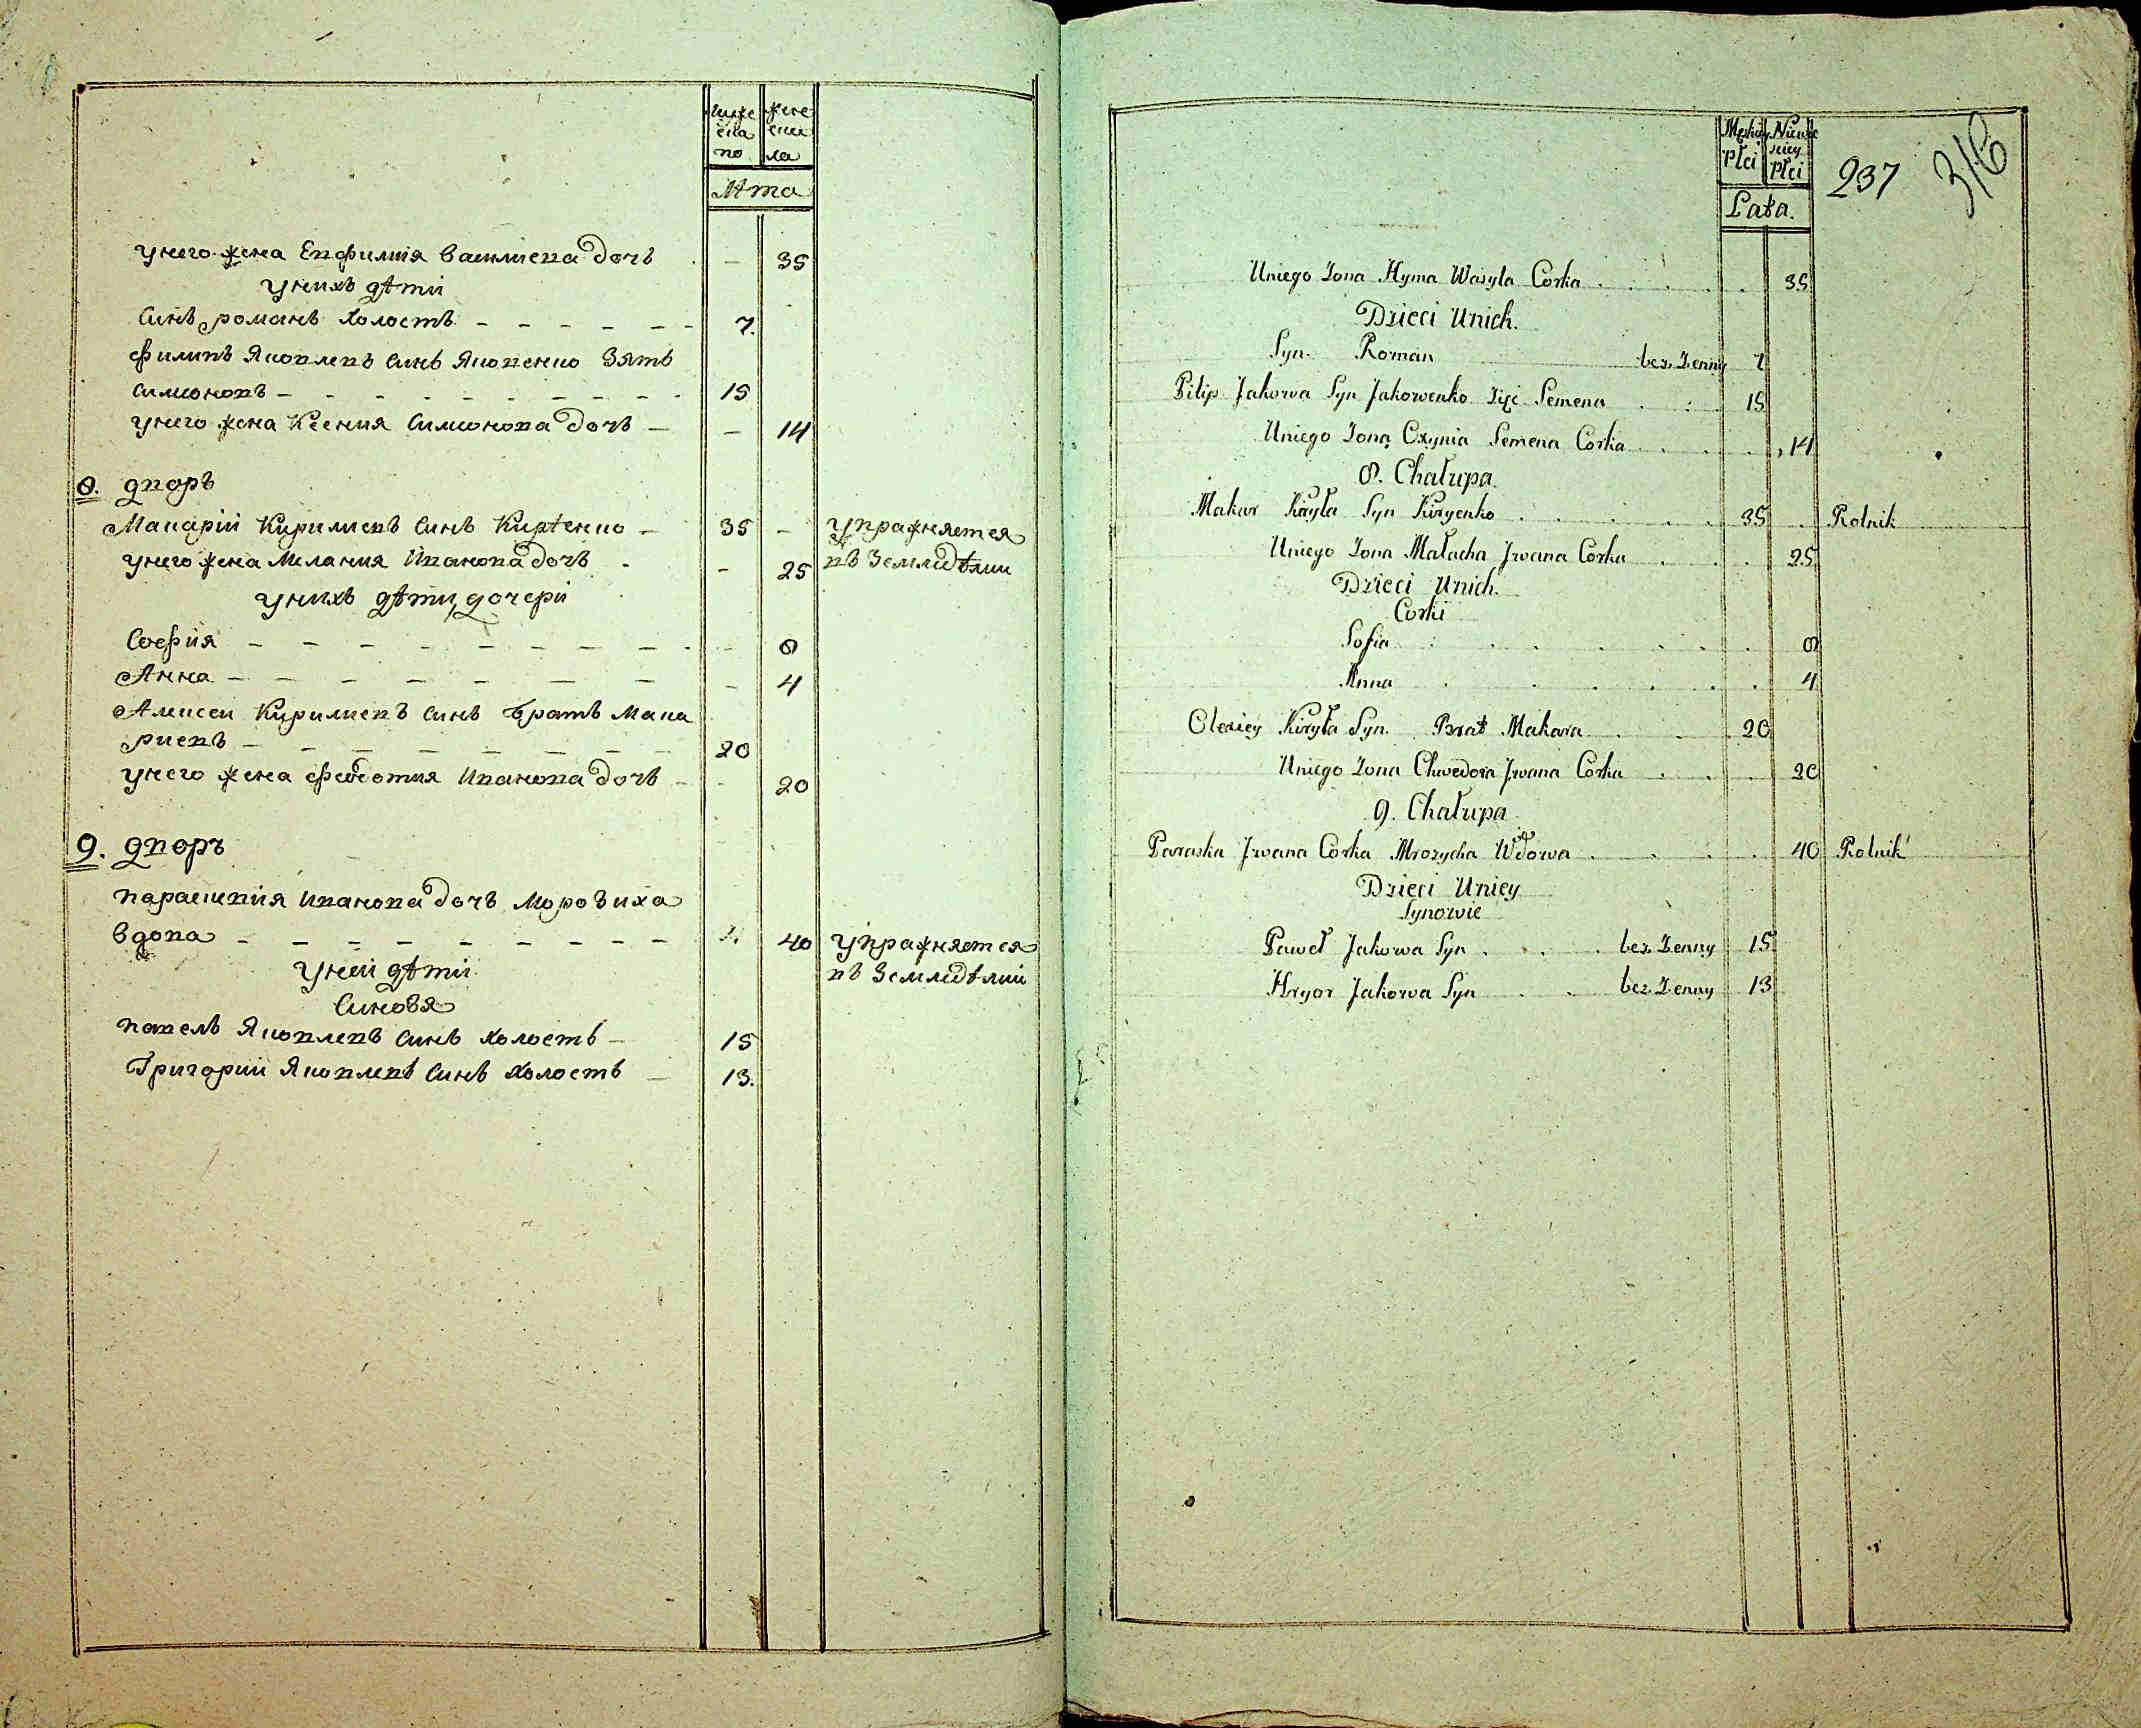 мужеска по
женска ла
Лѣта
унего жена Евфимия Василиева дочь - 35
унихъ дѣти
Синъ романъ холостъ - - - - - - 7.
филипъ Яковлевъ Синъ Яковенко Зять
Симоновъ - - - - - - - - - 15
унего жена Ксения Симонова дочь - - 14
8. дворъ
Макарий Кирилиевъ Синъ Киріенко - 35 - упражняется
унего жена Мелания Иванова дочь - - 25 въ Землидѣлии
унихъ дѣти, дочери
София - - - - - - - - - 8
Анна - - - - - - - - 4
Алексеи Кирилиевъ Синъ братъ Мака
риевъ - - - - - - - - 20
унего жена Федотия Иванова дочь - - 20
9. дворъ
параскивия Иванова дочъ Морозиха
вдова - - - - - - - - - 40 упражняется
уней дѣти въ Землидѣлии
Синовя
павелъ Яковлевъ Синъ холостъ - 15
Григории Яковлевъ Синъ холостъ - 13.
Męskiey Płci
Niewieściey Płci
237 316
Lata.
Uniego Żona Hyma Wasyla Corka . . . . . 35
Dzieci Unich.
Syn. Roman bez Żenny 7
Pilip Jakowa Syn Jakowenko Zięć Semena . . . 15
Uniego Żona Oxynia Semena Corka . . . . 14
8. Chałupa.
Makar Kiryła Syn Kiryenko . . . . . 35 . Rolnik
Uniego Żona Małacha Jwana Corka . . . 25
Dzieci Unich.
Corki
Sofia . . . . . . . 8
Anna . . . . . . 4
Olexiey Kiryła Syn. Brat Makara . . 20
Uniego Żona Chwedora Jwana Corka . . . 20
9. Chałupa
Paraska Jwana Corka Mrozycha Wdowa . . . . 40 Rolnik
Dzieci Uniey
Synowie
Paweł Jakowa Syn . . . bez Żenny 15
Hryor Jakowa Syn . . bez Żenny 13